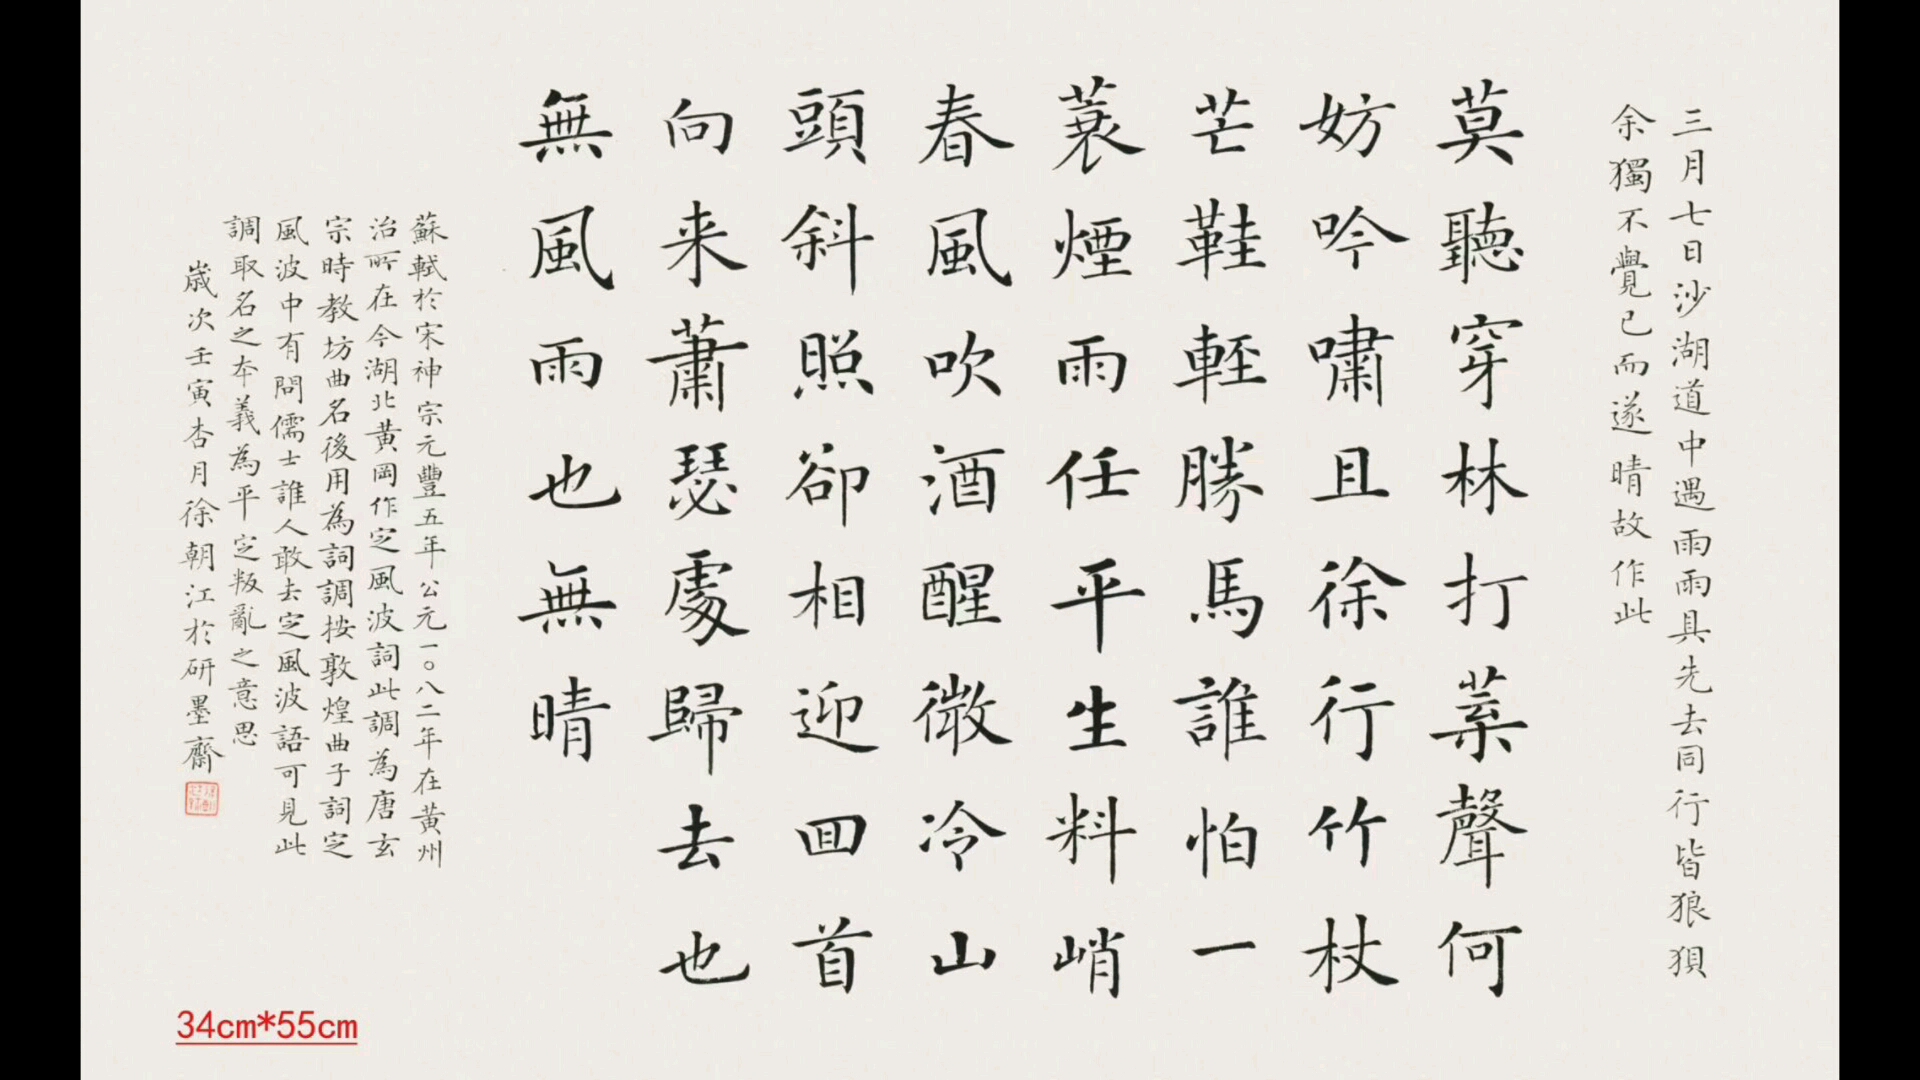 三月七日沙湖道中遇雨雨具先去同行皆狼狽
余獨不覺已而遂晴故作此
莫聽穿林打葉聲何
妨吟嘯且徐行竹杖
芒鞋輕勝馬誰怕一
蓑煙雨任平生料峭
春風吹酒醒微冷山
頭斜照卻相迎回首
向来蕭瑟處歸去也
無風雨也無晴
蘇軾於宋神宗元豐五年公元一〇八二年在黃州
治所在今湖北黃岡作定風波詞此調為唐玄
宗時教坊曲名後用為詞調按敦煌曲子詞定
風波中有問儒士誰人敢去定風波語可見此
調取名之本義為平定叛亂之意思
歲次壬寅杏月徐朝江於研墨齋
34cm*55cm